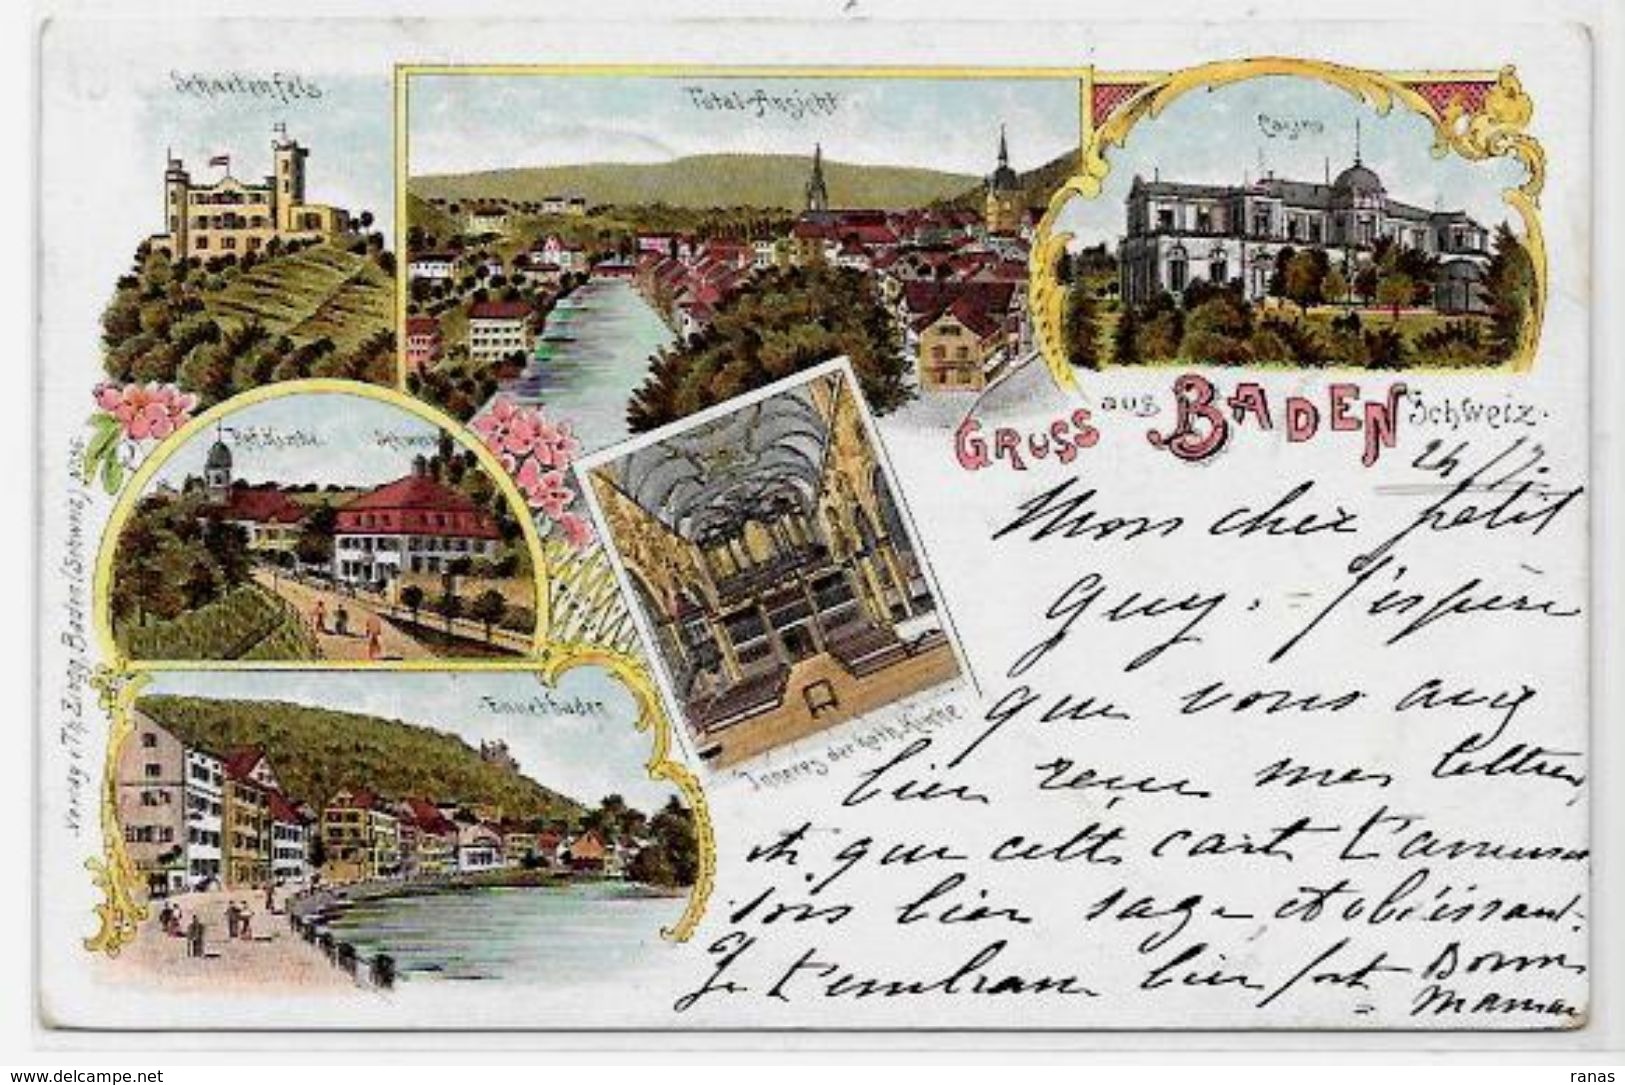 Schartenfels
Total-Ansicht
Casino
GRUSS aus BADEN Schweiz.
Ref. Kirche
Ennetbaden
Inneres der kath. Kirche
Verlag v. Th. Zingg, Baden (Schweiz) No 56
Mon cher petit
Guy. J'espère
que vous avez
bien reçu mes lettres,
et que cette carte t'amusera
sois bien sage et obéissant.
Je t'embrasse bien fort Bonne
Maman
delcampe.net
ranas